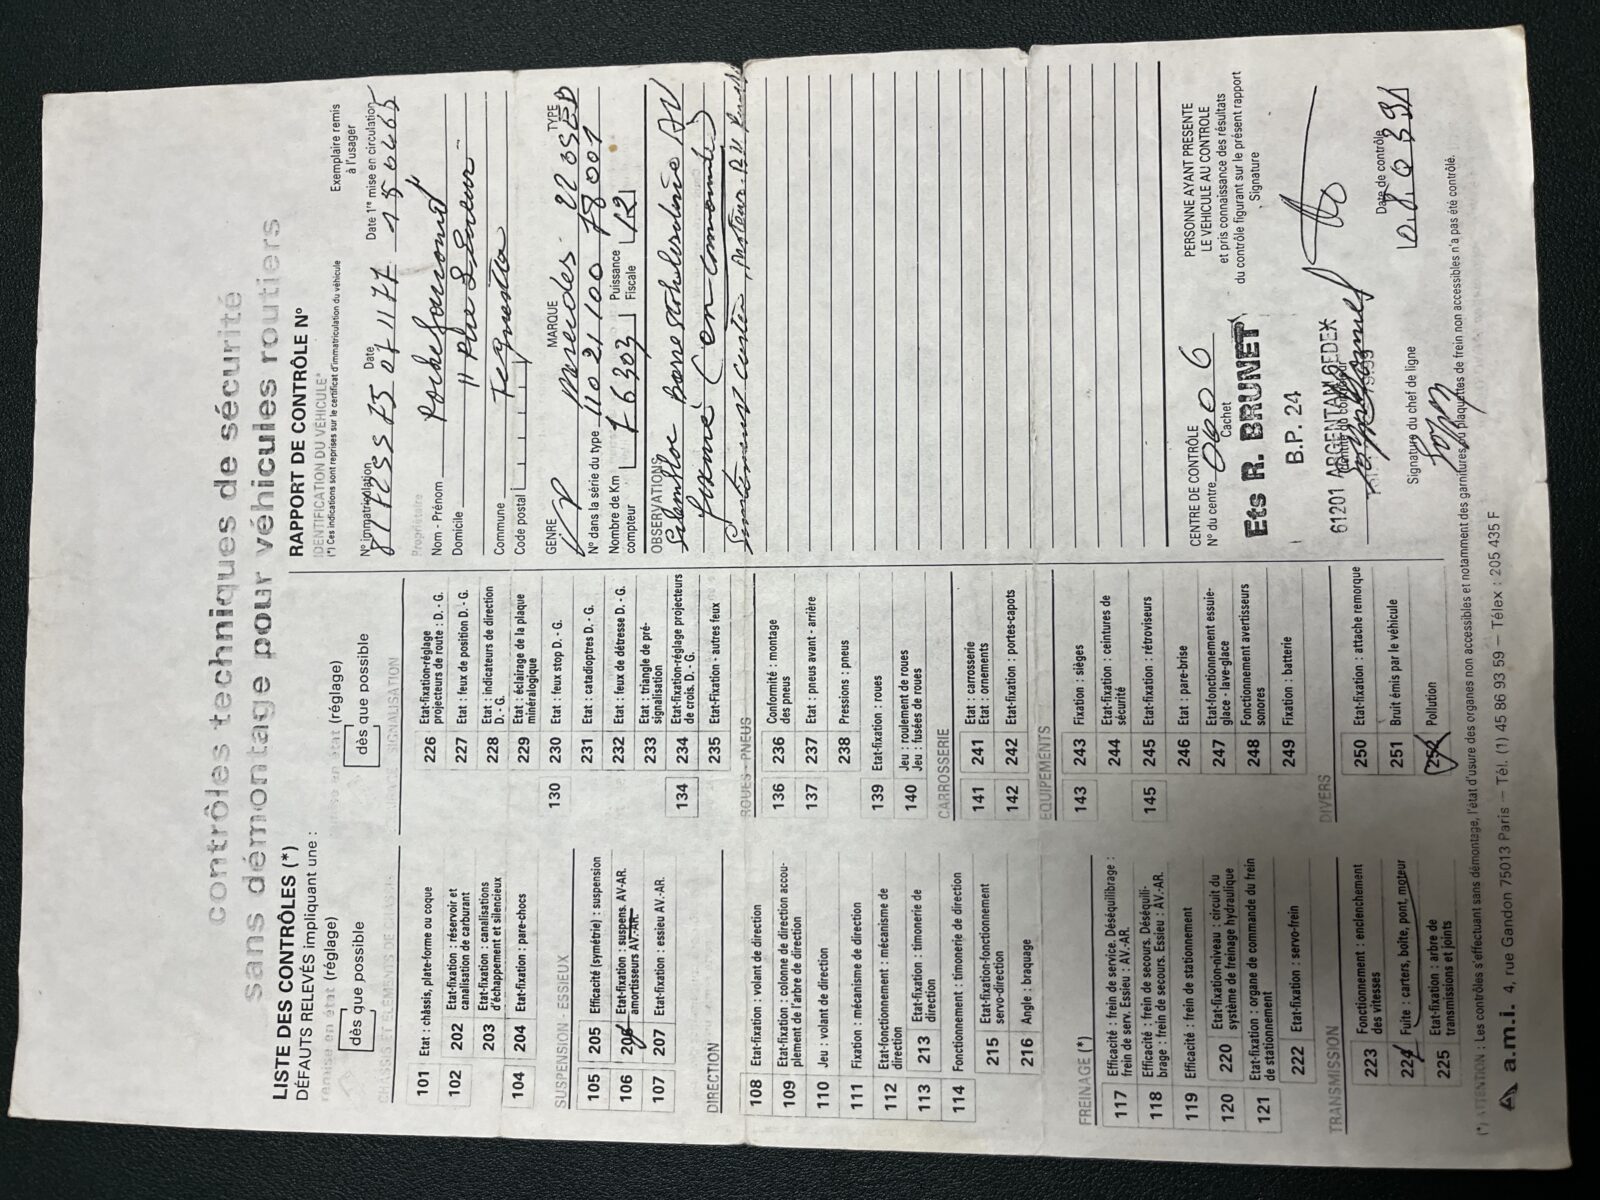 contrôles techniques de sécurité
sans démontage pour véhicules routiers
LISTE DES CONTRÔLES (*)
DÉFAUTS RELEVÉS impliquant une :
remise en état (réglage)
dès que possible
remise en état (réglage)
dès que possible
CHASSIS ET ELEMENTS DE CHASSIS
101 Etat : châssis, plate-forme ou coque
102 202 Etat-fixation : réservoir et
canalisation de carburant
203 Etat-fixation : canalisations
d'échappement et silencieux
104 204 Etat-fixation : pare-chocs
SUSPENSION - ESSIEUX
105 205 Efficacité (symétrie) : suspension
106 206 Etat-fixation : suspens. AV-AR.
amortisseurs AV.-AR.
107 207 Etat-fixation : essieu AV.-AR.
DIRECTION
108 Etat-fixation : volant de direction
109 Etat-fixation : colonne de direction accou-
plement de l'arbre de direction
110 Jeu : volant de direction
111 Fixation : mécanisme de direction
112 Etat-fonctionnement : mécanisme de
direction
113 213 Etat-fixation : timonerie de
direction
114 Fonctionnement : timonerie de direction
215 Etat-fixation-fonctionnement
servo-direction
216 Angle : braquage
FREINAGE (*)
117 Efficacité : frein de service. Déséquilibrage :
frein de serv. Essieu : AV.-AR.
118 Efficacité : frein de secours. Déséquili-
brage : frein de secours. Essieu : AV.-AR.
119 Efficacité : frein de stationnement
120 220 Etat-fixation-niveau : circuit du
système de freinage hydraulique
121 Etat-fixation : organe de commande du frein
de stationnement
222 Etat-fixation : servo-frein
TRANSMISSION
223 Fonctionnement : enclenchement
des vitesses
224 Fuite : carters, boîte, pont, moteur
225 Etat-fixation : arbre de
transmissions et joints
SIGNALISATION
226 Etat-fixation-réglage
projecteurs de route : D. - G.
227 Etat : feux de position D. - G.
228 Etat : indicateurs de direction
D. - G.
229 Etat : éclairage de la plaque
minéralogique
130 230 Etat : feux stop D. - G.
231 Etat : catadioptres D. - G.
232 Etat : feux de détresse D. - G.
233 Etat : triangle de pré-
signalisation
134 234 Etat-fixation-réglage projecteurs
de crois. D. - G.
235 Etat-Fixation - autres feux
ROUES - PNEUS
136 236 Conformité : montage
des pneus
137 237 Etat : pneus avant - arrière
238 Pressions : pneus
139 Etat-fixation : roues
140 Jeu : roulement de roues
Jeu : fusées de roues
CARROSSERIE
141 241 Etat : carrosserie
Etat : ornements
142 242 Etat-fixation : portes-capots
EQUIPEMENTS
143 243 Fixation : sièges
244 Etat-fixation : ceintures de
sécurité
145 245 Etat-fixation : rétroviseurs
246 Etat : pare-brise
247 Etat-fonctionnement essuie-
glace - lave-glace
248 Fonctionnement avertisseurs
sonores
249 Fixation : batterie
DIVERS
250 Etat-fixation : attache remorque
251 Bruit émis par le véhicule
252 Pollution
RAPPORT DE CONTRÔLE N°
Exemplaire remis
à l'usager
IDENTIFICATION DU VEHICULE*
(*) Ces indications sont reprises sur le certificat d'immatriculation du véhicule
N° immatriculation Date Date 1re mise en circulation
75 07 11 77 150465
Propriétaire
Nom - Prénom
Domicile 11
Commune
Code postal
GENRE MARQUE TYPE
VP Mercedes 220SEB
N° dans la série du type 11 021 100 78001
Nombre de Km
compteur 76303 Puissance
Fiscale 12
OBSERVATIONS
Silentbloc barre stabilisatrice AV
(en commande)
CENTRE DE CONTRÔLE
N° du centre 0006
Cachet
Ets R. BRUNET
B.P. 24
61201 ARGENTAN CEDEX
Identité du contrôleur
Signature du chef de ligne
PERSONNE AYANT PRESENTE
LE VEHICULE AU CONTROLE
et pris connaissance des résultats
du contrôle figurant sur le présent rapport
Signature
Date de contrôle
08 03 91
(*) ATTENTION : Les contrôles s'effectuant sans démontage, l'état d'usure des organes non accessibles et notamment des garnitures ou plaquettes de frein non accessibles n'a pas été contrôlé.
a.m.i. 4, rue Gandon 75013 Paris – Tél. (1) 45 86 93 59 – Télex : 205 435 F